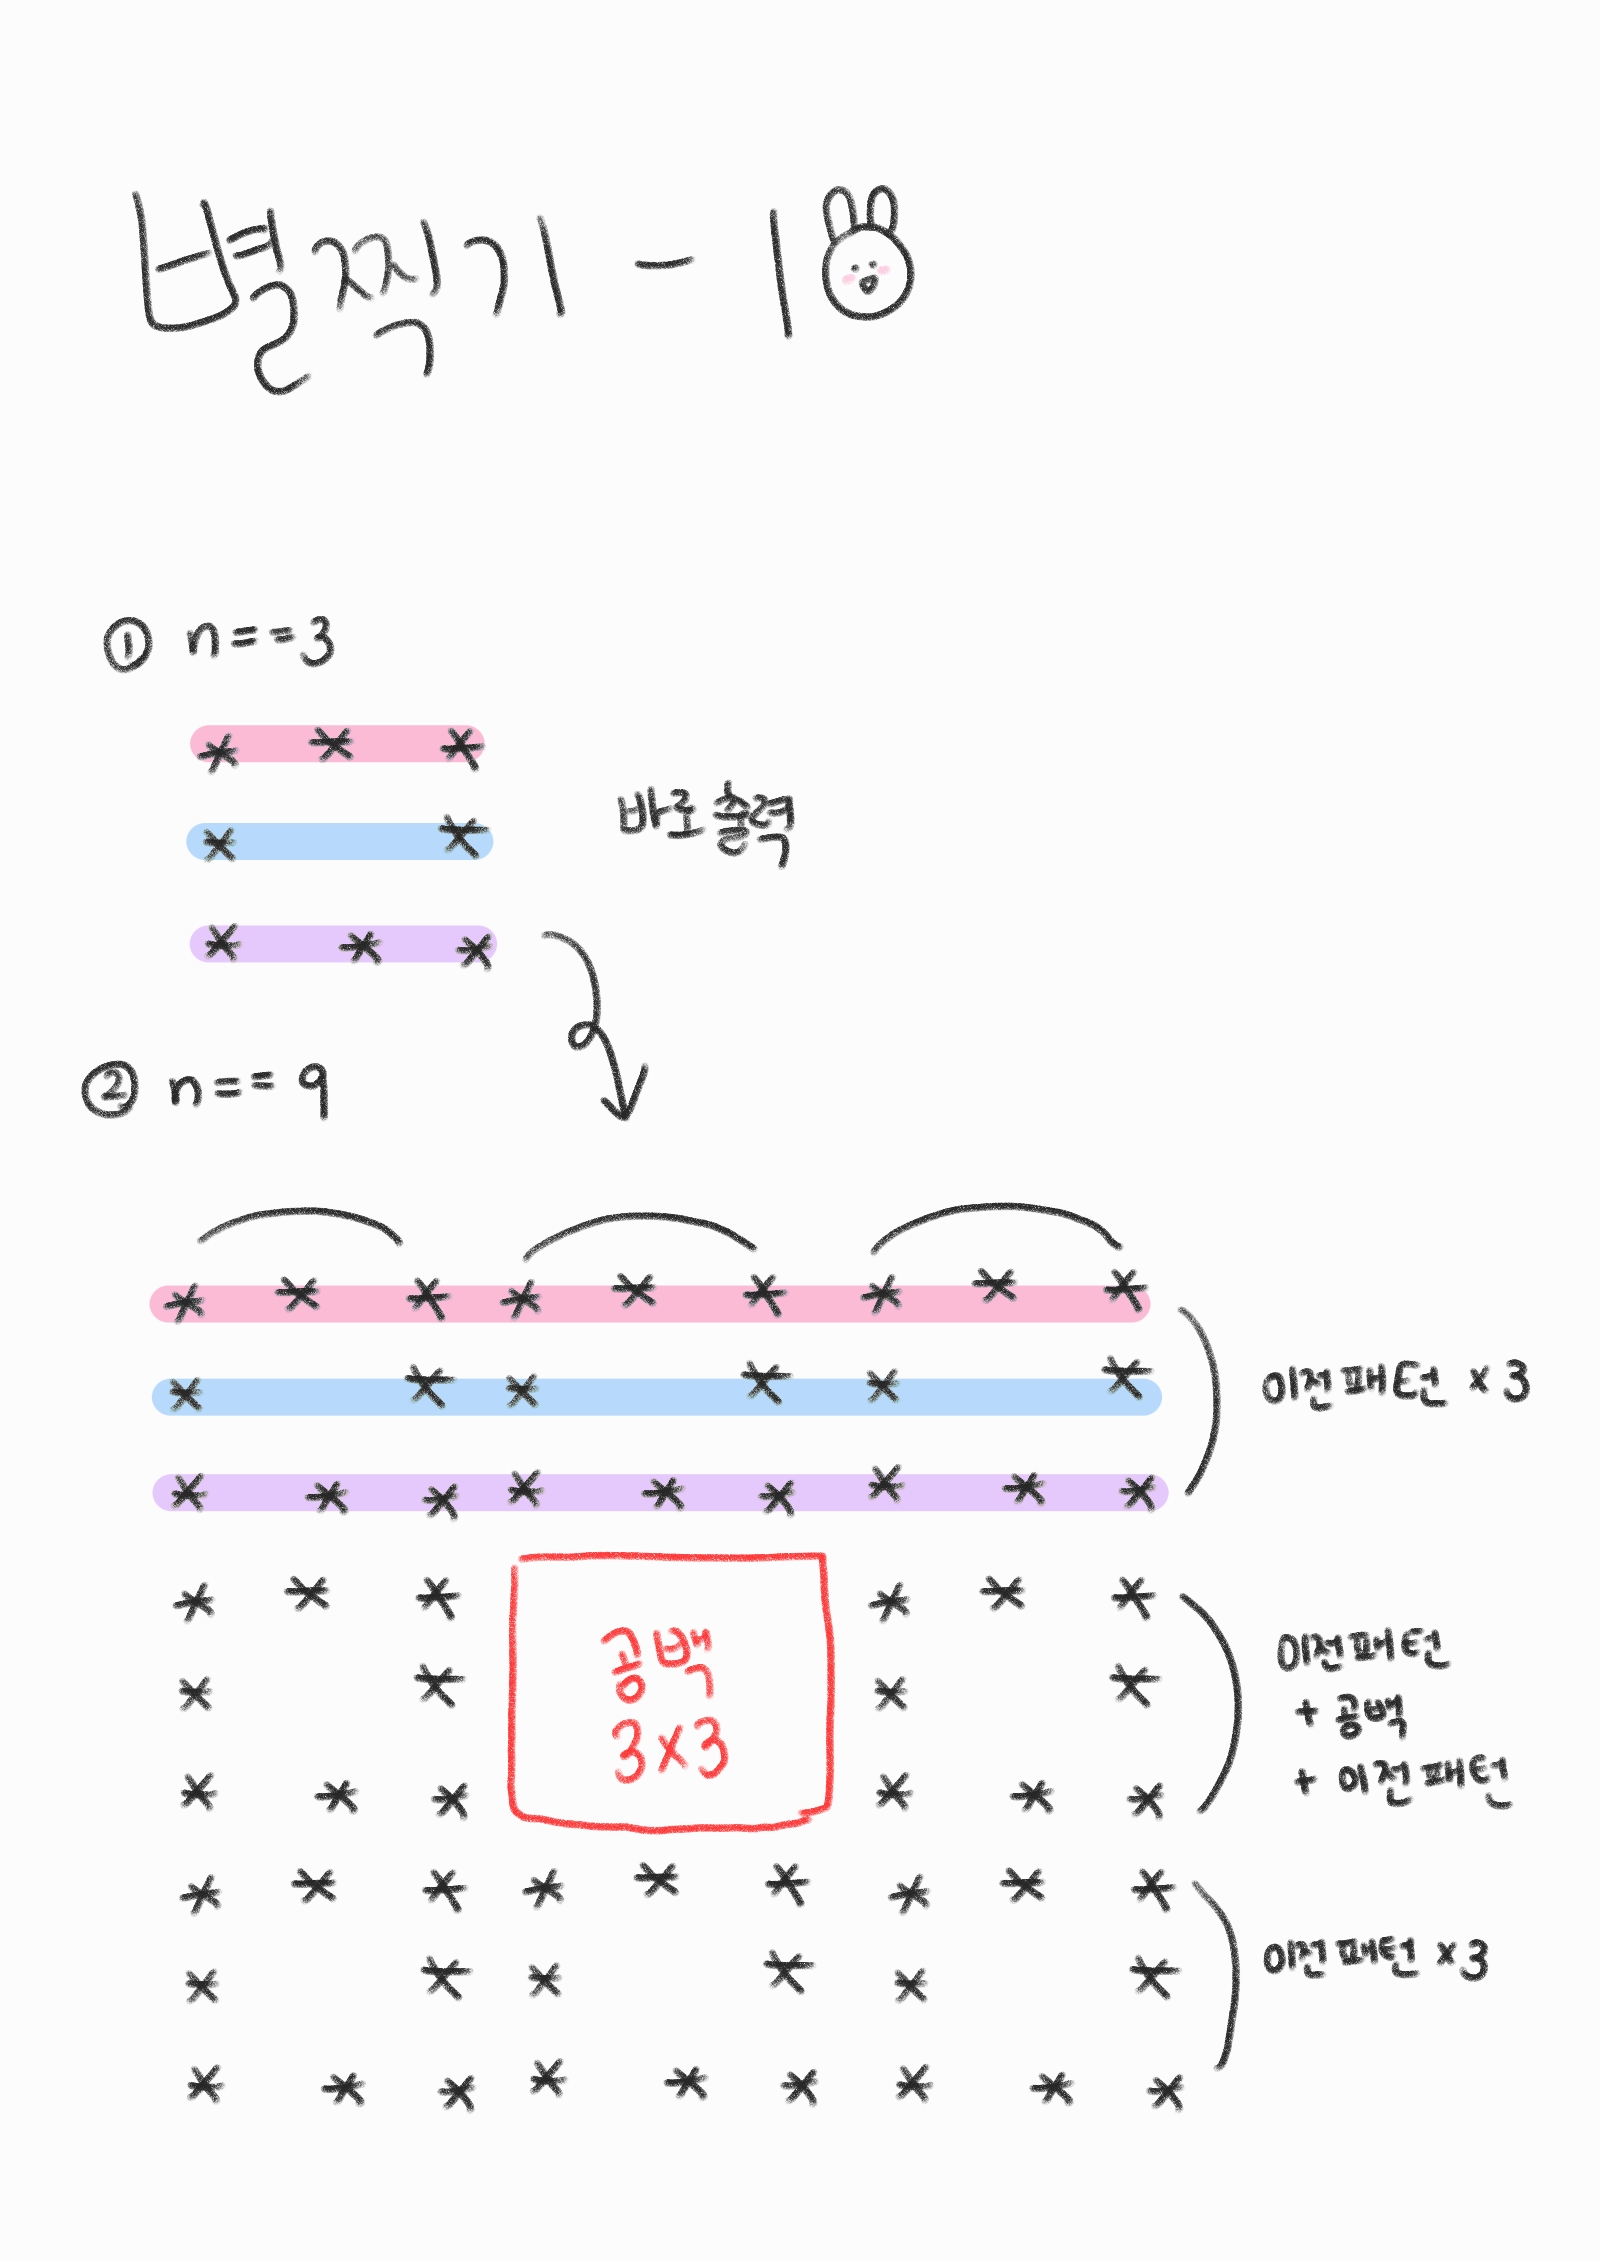 별찍기 - 10
① n==3
* * *
*   *
바로 출력
* * *
② n==9
* * * * * * * * *
*   * *   * *   *
이전패턴 x 3
* * * * * * * * *
* * *       * * *
공백
이전패턴
*   *       *   *
+ 공백
3x3
* * *       * * *
+ 이전패턴
* * * * * * * * *
*   * *   * *   *
이전패턴 x3
* * * * * * * * *